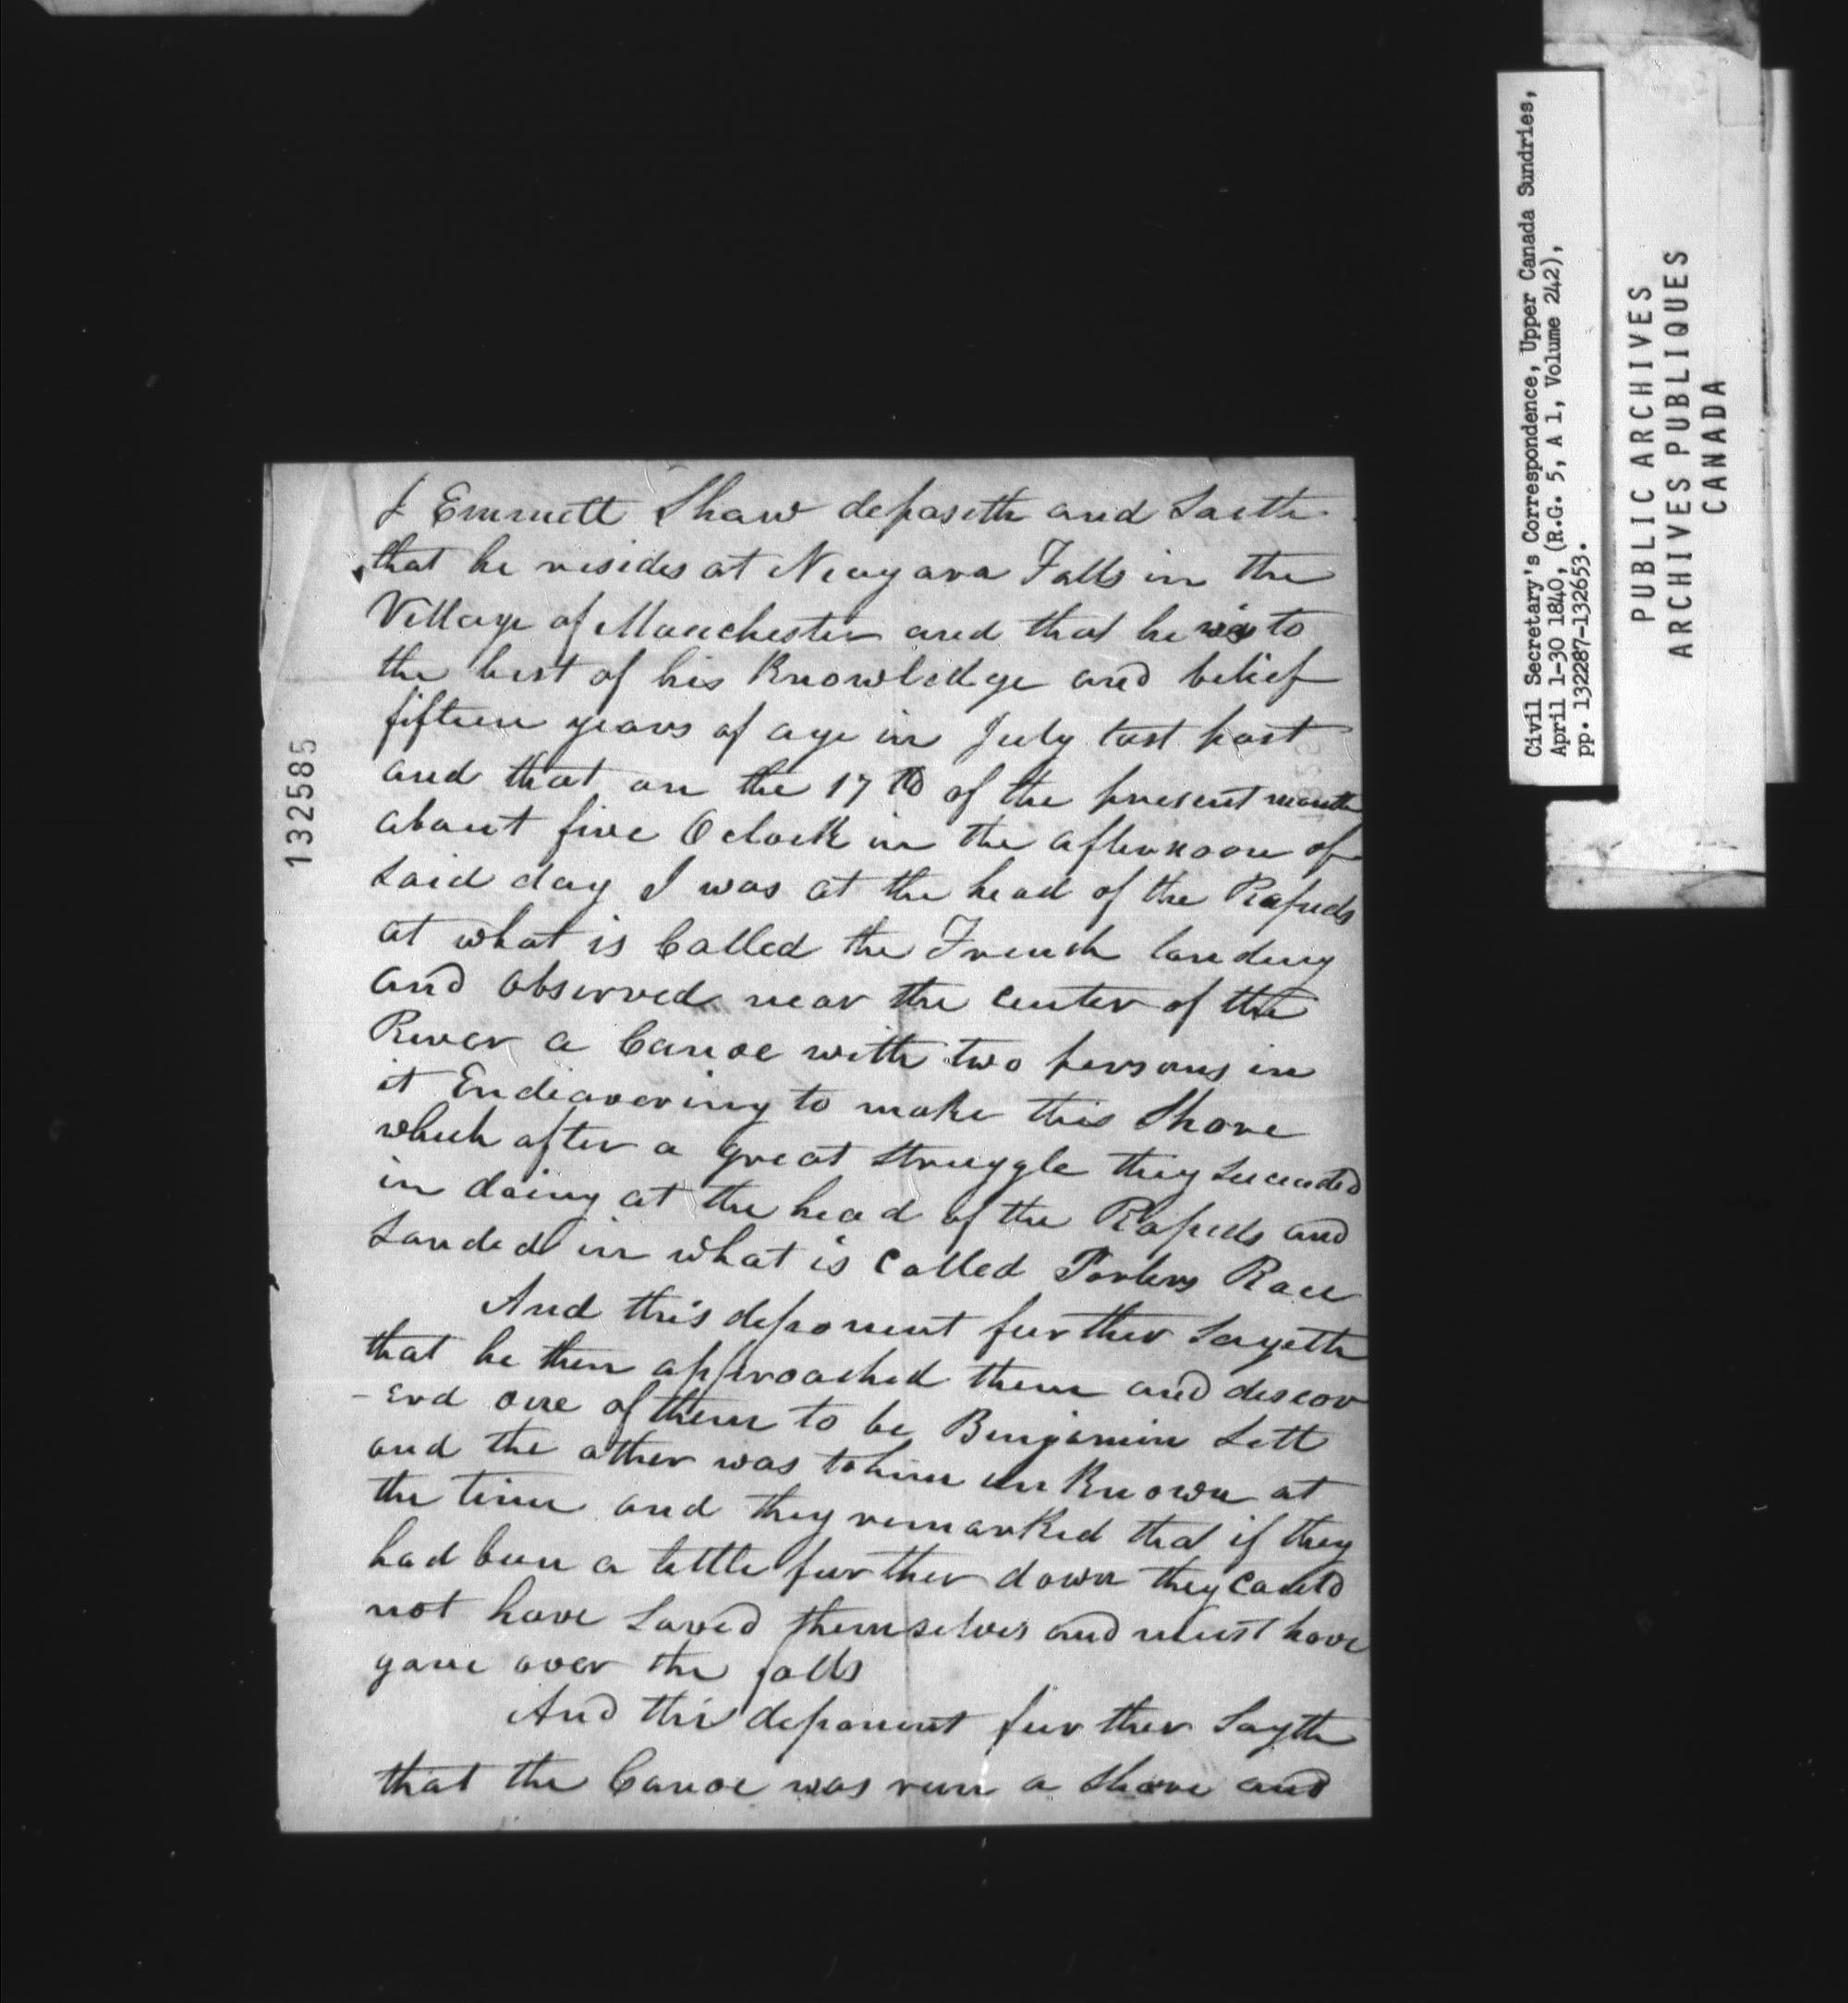 I Emmett Shaw deposeth and Saeth
that he resides at Neagara Falls in the
Village of Manchester and that he was to
the best of his Knowledge and belief
fifteen years of age in July last past
and that on the 17th of the present month
about five Oclock in the afternoon of
Said day I was at the head of the Rapids
at what is Called the French landing
and observed near the center of the
River a Canoe with two persons in
it Endeavering to make this Shore
which after a great Struggle they Succeeded
in doing at the head of the Rapids and
Landed in what is Called Porters Race
And this deponent further Sayeth
that he then approached them and discov
-erd one of them to be Benjamin Lett
and the other was to him unKnown at
the time and they remarKed that if they
had been a little further down they Could
not have Saved themselves and must have
gone over the falls
And this deponent further Sayth
that the Canoe was run a Shore and
132585
Civil Secretary's Correspondence, Upper Canada Sundries,
April 1-30 1840, (R.G. 5, A 1, Volume 242),
pp. 132287-132653.
PUBLIC ARCHIVES
ARCHIVES PUBLIQUES
CANADA